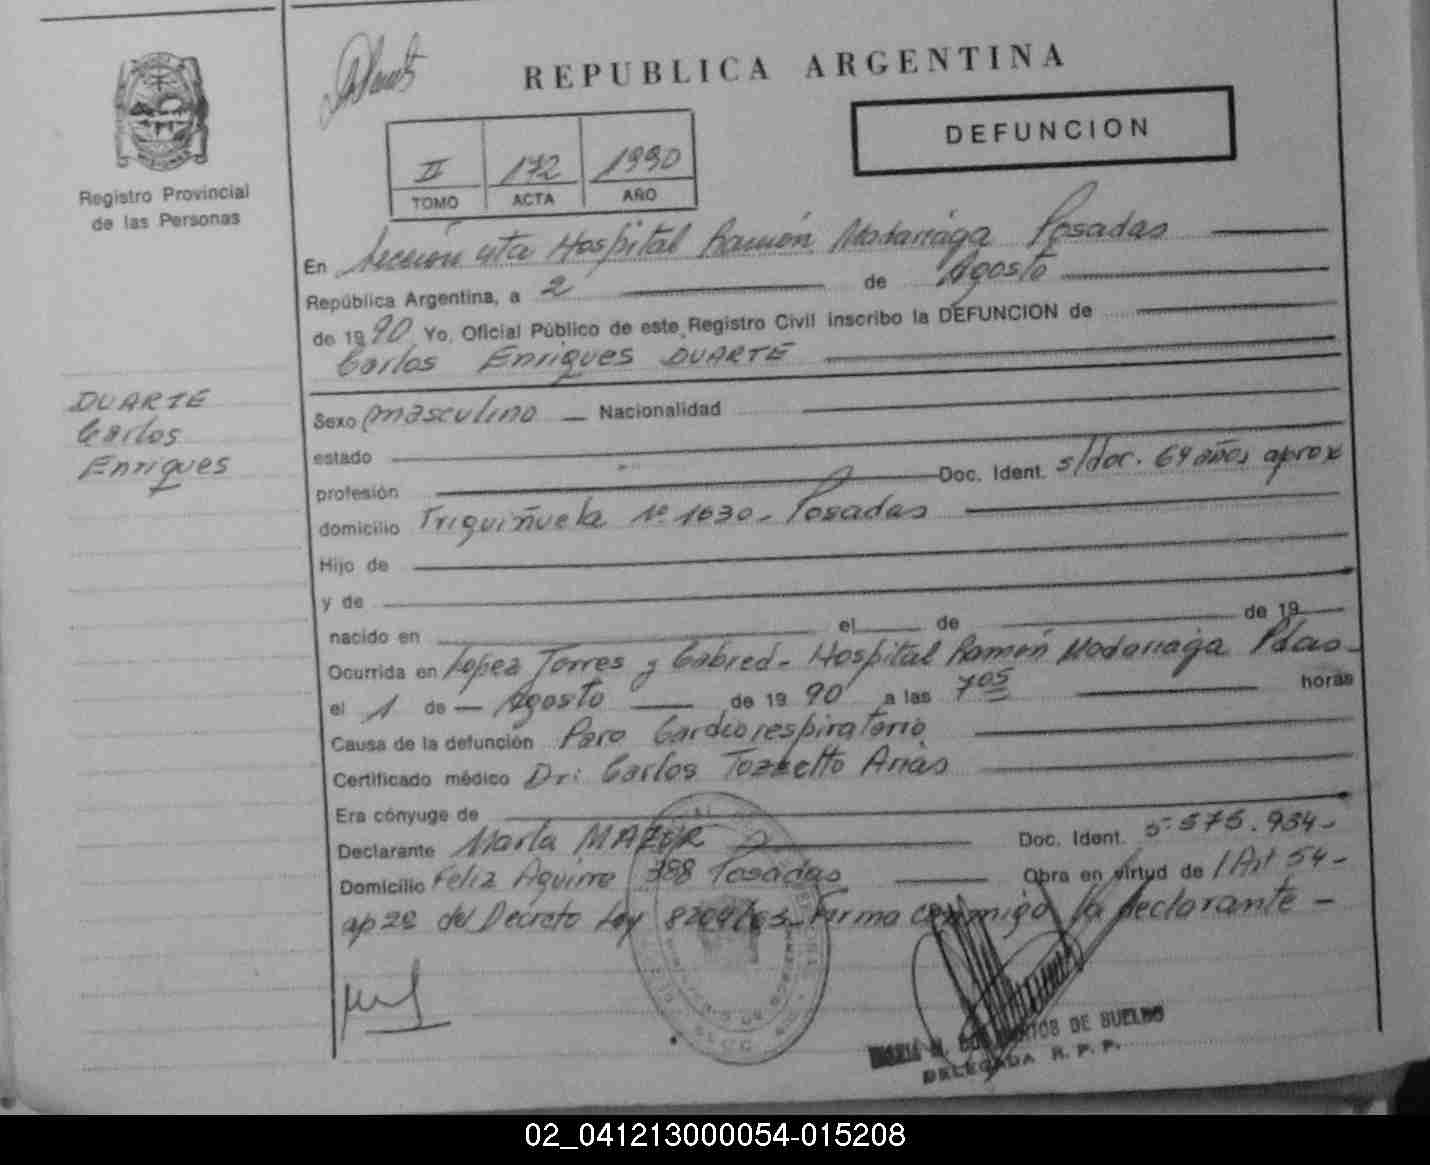 REPUBLICA ARGENTINA
DEFUNCION
II 172 1990
TOMO ACTA AÑO
Registro Provincial
de las Personas
En Sección 4ta Hospital Ramón Madariaga Posadas
República Argentina, a 2 de Agosto
de 1990 Yo, Oficial Público de este Registro Civil inscribo la DEFUNCION de
Carlos Enriques DUARTE
DUARTE
Carlos
Enriques
Sexo masculino Nacionalidad
estado
profesión Doc. Ident. s/doc. 64 años aprox
domicilio Triquiñuela Nº 1630 - Posadas
Hijo de
y de
nacido en el de de 19
Ocurrida en Lopez Torres y Cabred - Hospital Ramón Madariaga Pdas -
el 1 de Agosto de 1990 a las 7 05 horas
Causa de la defunción Paro Cardiorespiratorio
Certificado médico Dr: Carlos Tozzetto Arias
Era cónyuge de
Declarante Marta MAZUR Doc. Ident. 5.575.934 -
Domicilio Feliz Aguirre 388 Posadas Obra en virtud de l Art 54 -
ap 2º del Decreto Ley 8204/63 - Firma conmigo la declarante -
MARIA DE BUELHO
DELEGADA R. P. P.
02_041213000054-015208